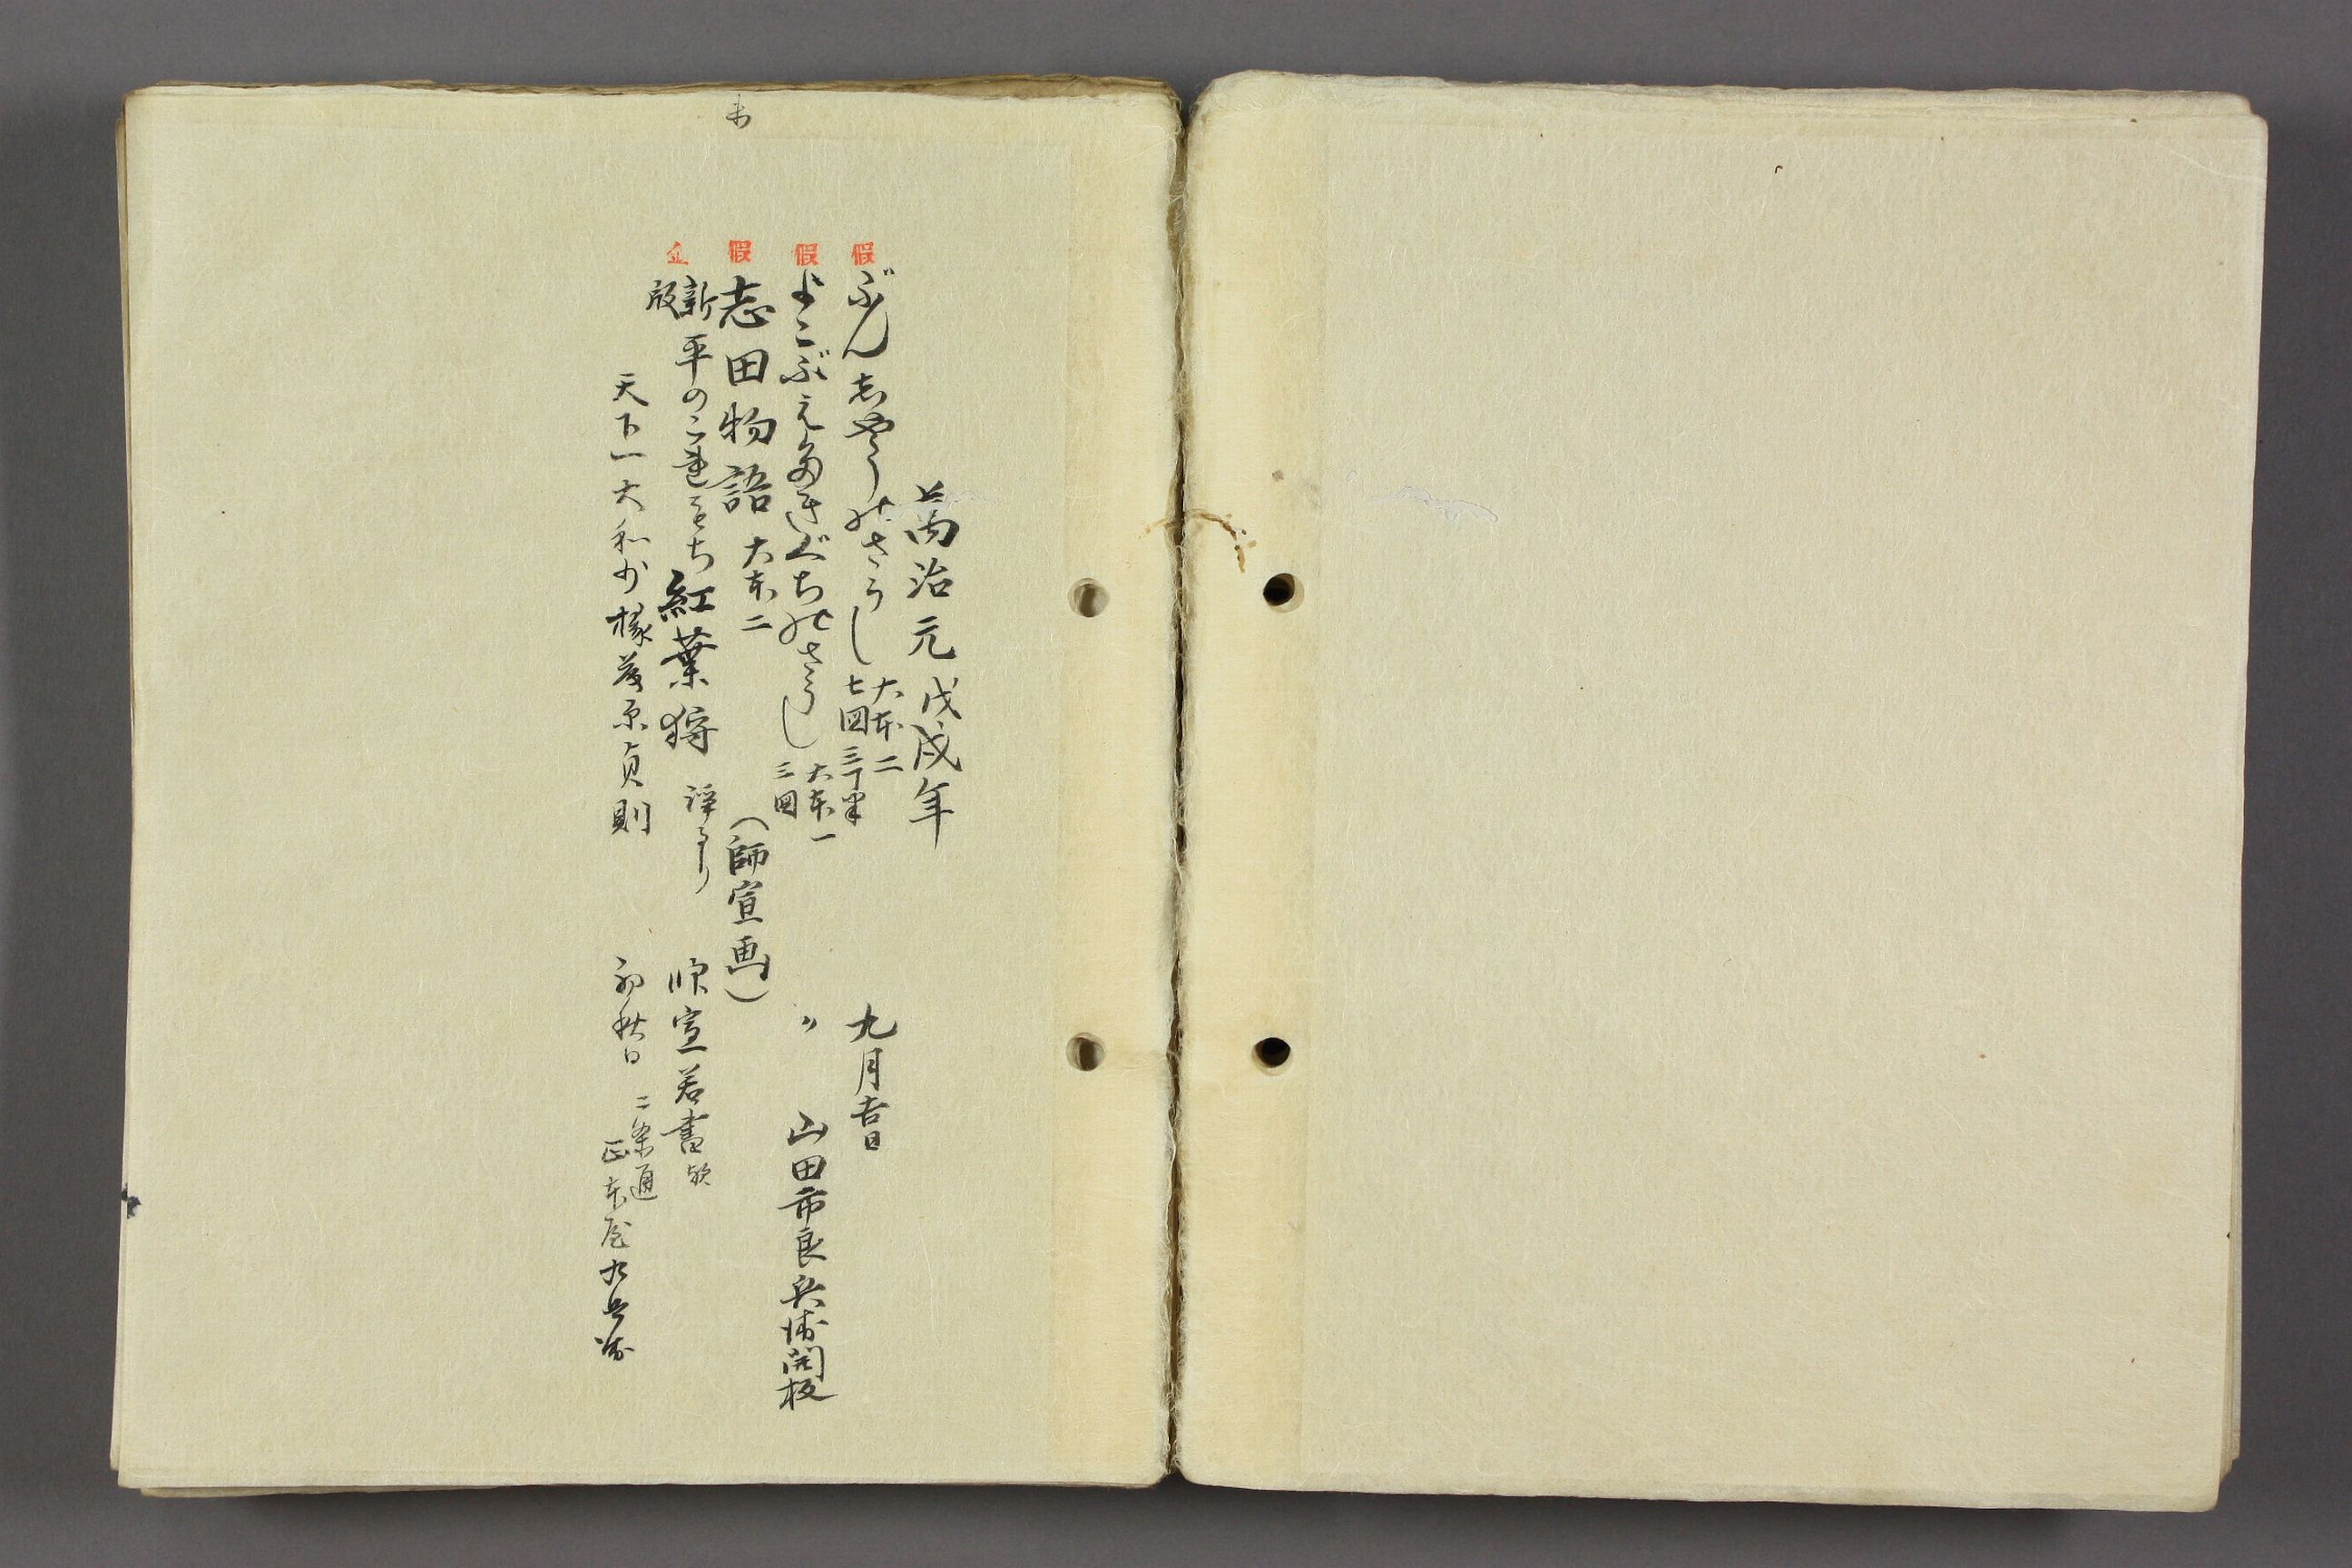 萬治元戊戌年
假 ぶん志やうのさうし 大本二 七図 三丁半 九月吉日
假 よこぶえたきぐちのさうし 大本一 三図 〃 山田市良兵衛開板
假 志田物語 大本二 (師宣画)
新版 平のこれもち 紅葉狩
天下一大和少掾藤原貞則 初秋日 二条通 正本屋九兵衛